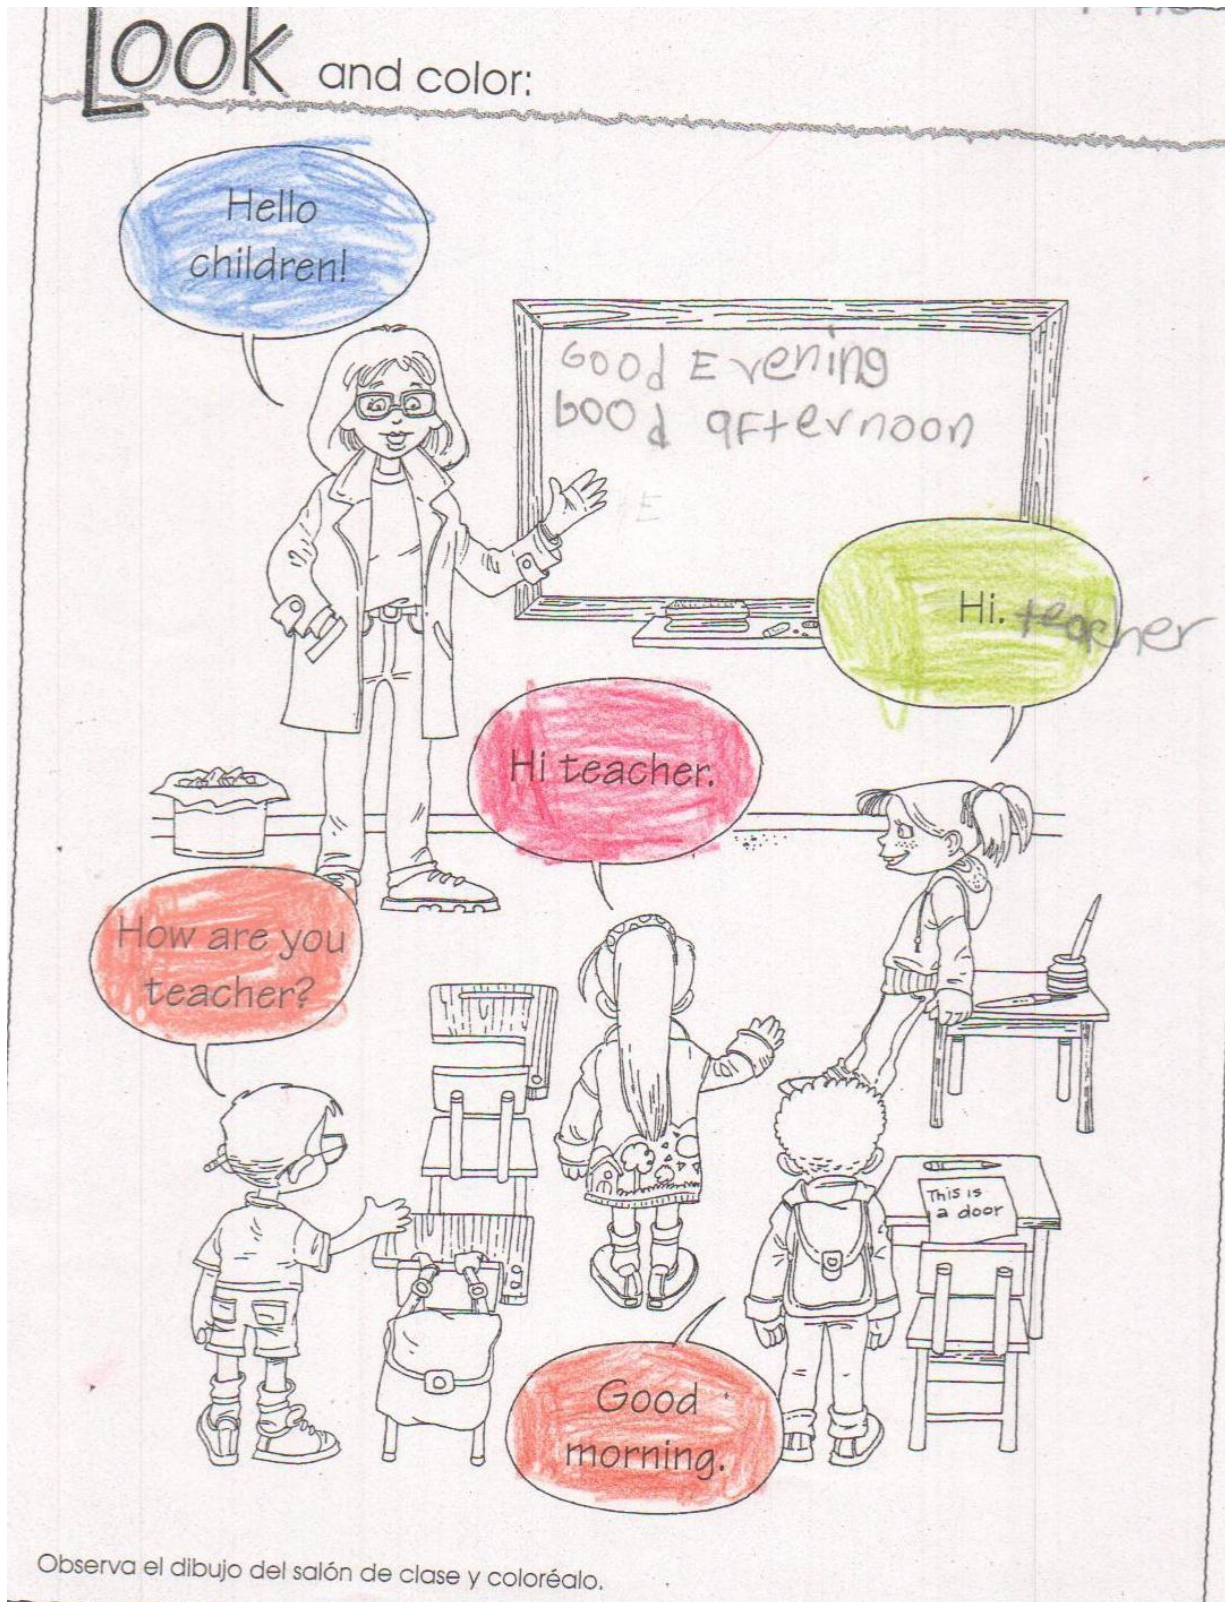 Look and color:
Hello
children!
Good Evening
Good afternoon
Hi. teacher
Hi teacher.
How are you
teacher?
This is
a door
Good
morning.
Observa el dibujo del salón de clase y coloréalo.